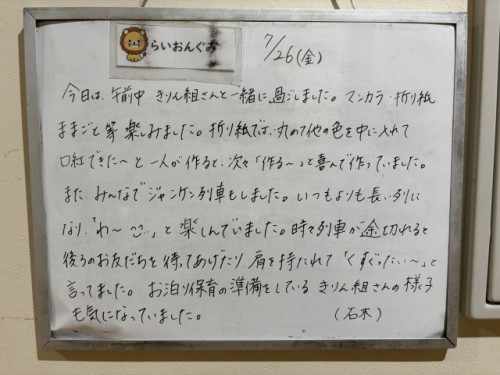 らいおんぐみ
7/26(金)
今日は、午前中 きりん組さんと一緒に過ごしました。マンカラ・折り紙
ままごと等 楽しみました。折り紙では、丸めて他の色を中に入れて
口紅できた～と一人が作ると、次々「作る～」と喜んで作っていました。
また、みんなでジャンケン列車もしました。いつもよりも長い列に
なり、「わ～」と楽しんでいました。時々列車が途切れると
後ろのお友だちを待ってあげたり、肩を持たれて「くすぐったい～」と
言ってました。お泊り保育の準備をしている きりん組さんの様子
も気になっていました。 (石木)